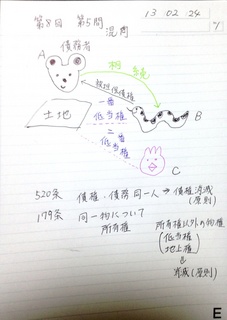 13 02 24
第8回 第5問
混同
A 債務者
相続
被担保債権
土地
一番
低当権
B
二番
低当権
C
520条 債権・債務同一人→債権消滅
(原則)
179条 同一物について
所有権
所有権以外の物権
(低当権
地上権)
消滅(原則)
E